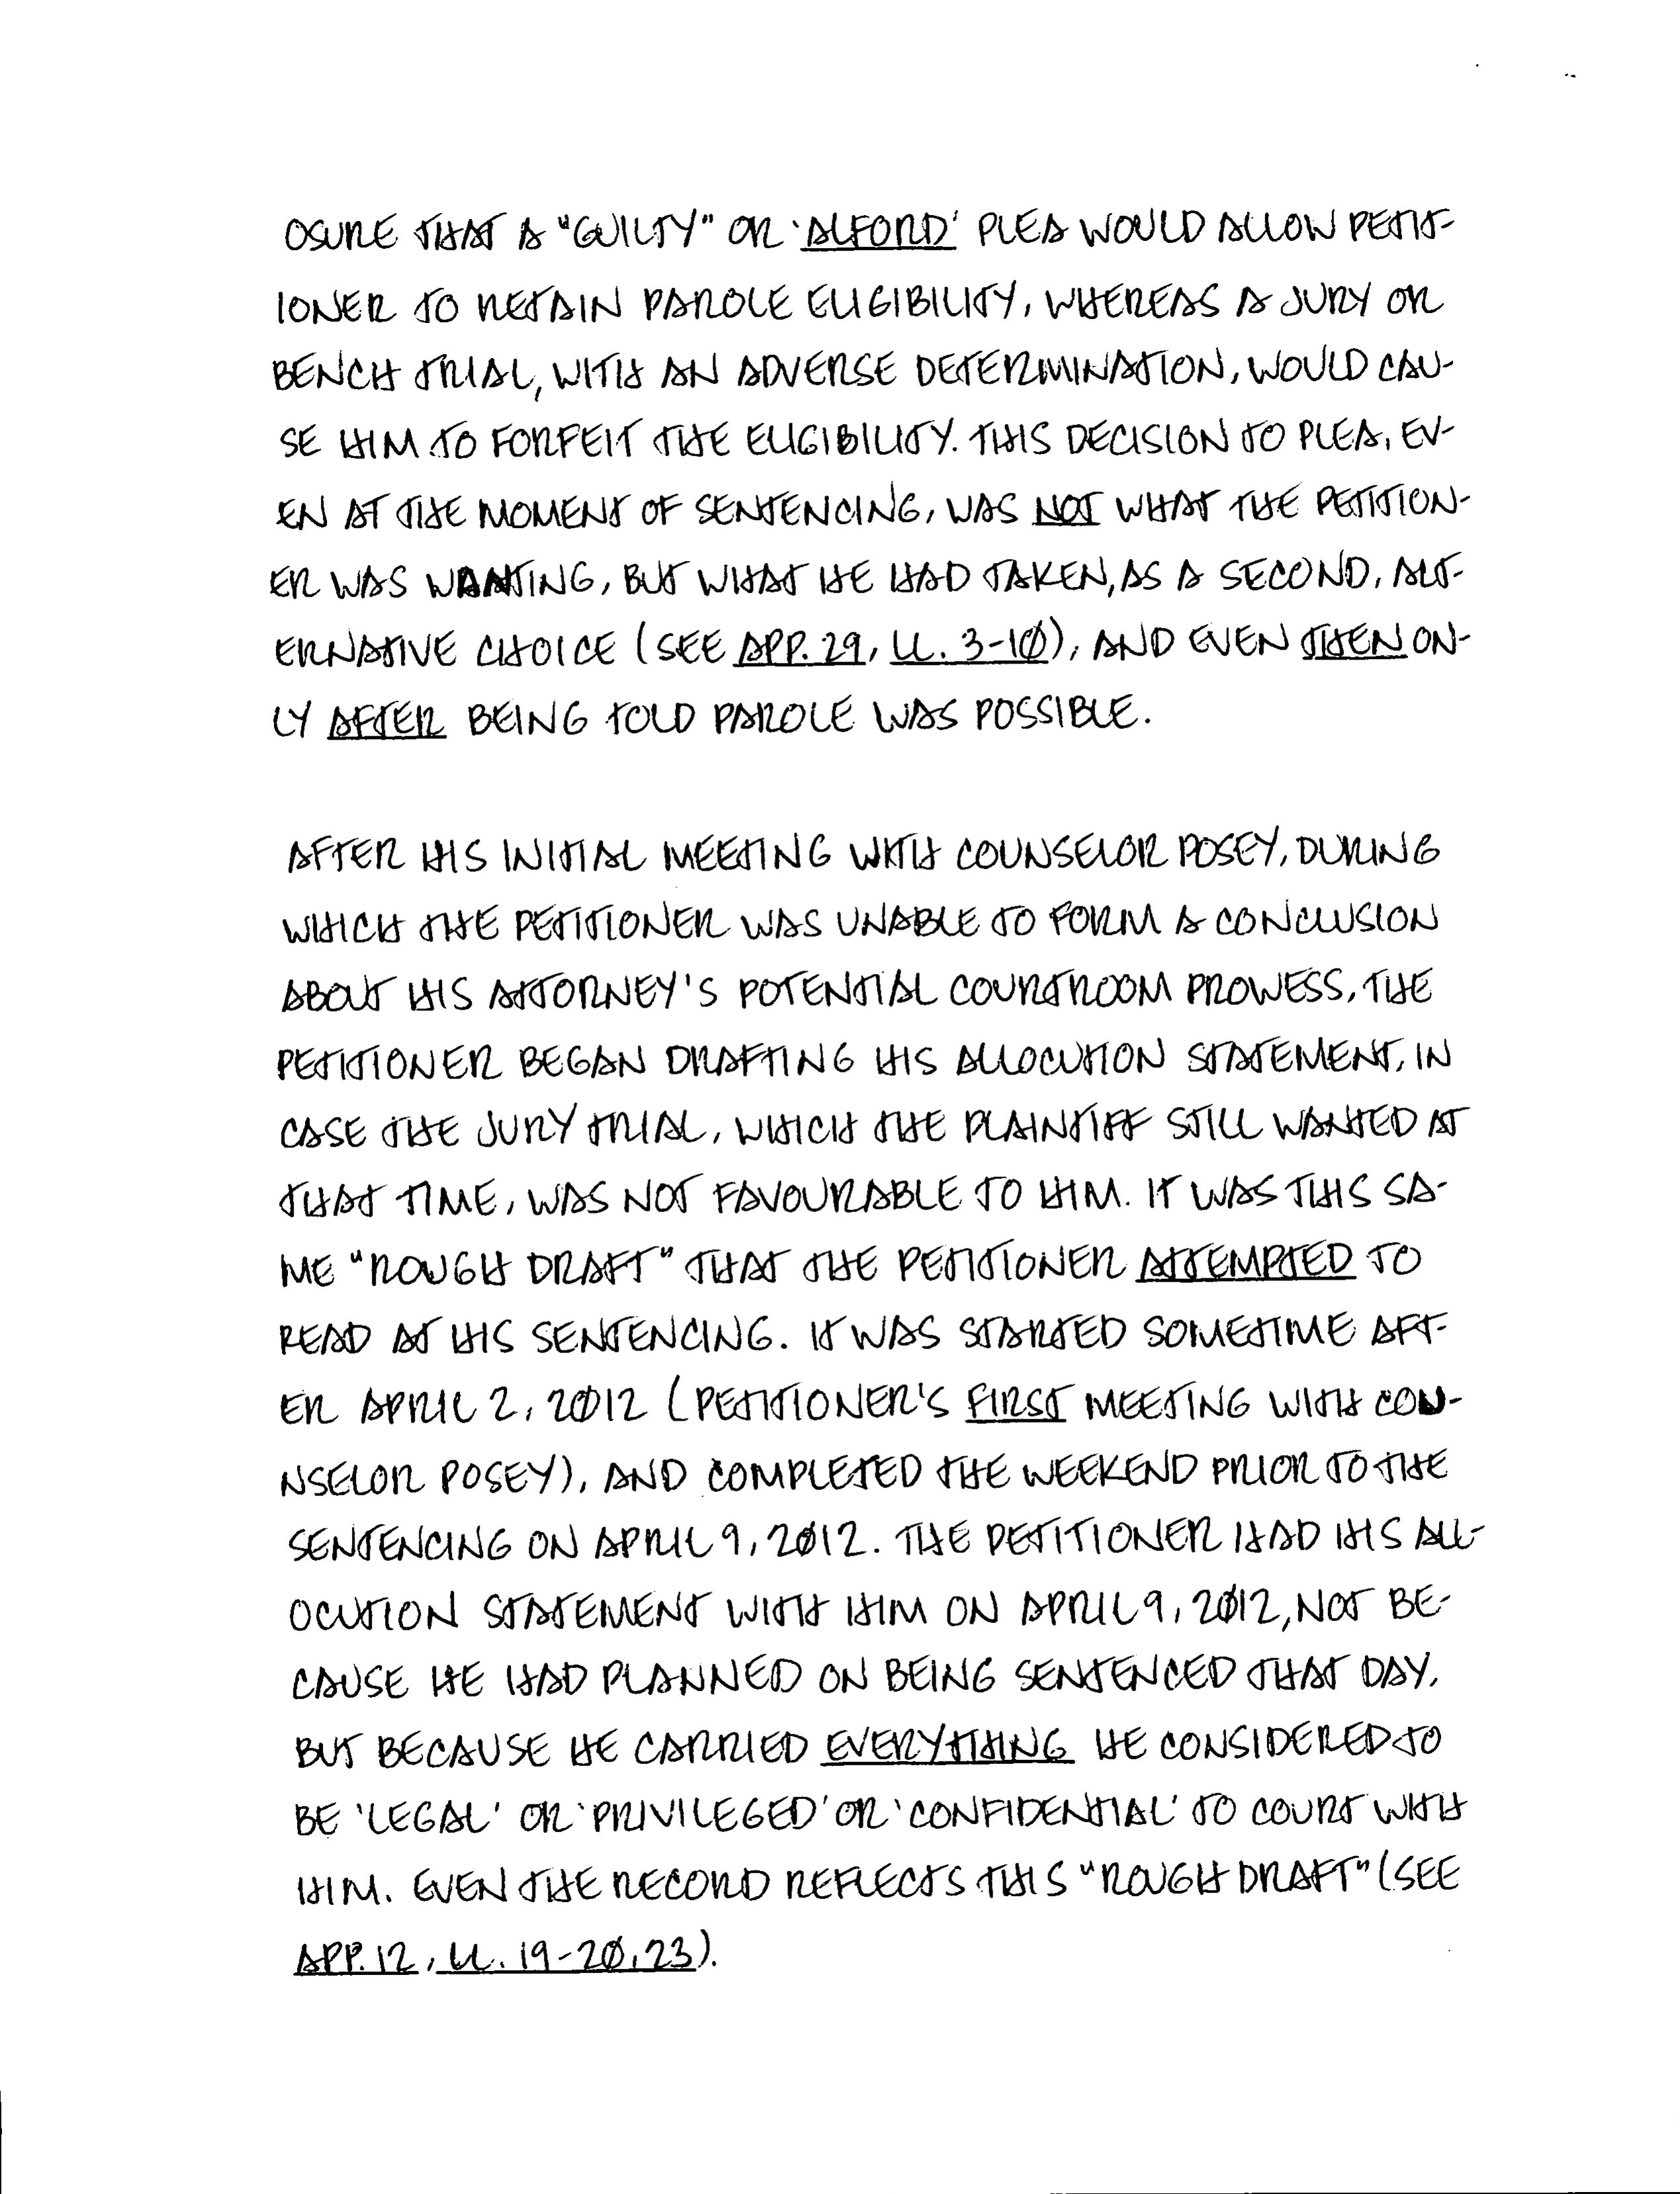 OSURE THAT A "GUILTY" OR 'ALFORD' PLEA WOULD ALLOW PETIT-
IONER TO RETAIN PAROLE ELIGIBILITY, WHEREAS A JURY OR
BENCH TRIAL, WITH AN ADVERSE DETERMINATION, WOULD CAU-
SE HIM TO FORFEIT THE ELIGIBILITY. THIS DECISION TO PLEA, EV-
EN AT THE MOMENT OF SENTENCING, WAS NOT WHAT THE PETITION-
ER WAS WANTING, BUT WHAT HE HAD TAKEN, AS A SECOND, ALT-
ERNATIVE CHOICE (SEE APP. 29, LL. 3-10), AND EVEN THEN ON-
LY AFTER BEING TOLD PAROLE WAS POSSIBLE.
AFTER HIS INITIAL MEETING WITH COUNSELOR POSEY, DURING
WHICH THE PETITIONER WAS UNABLE TO FORM A CONCLUSION
ABOUT HIS ATTORNEY'S POTENTIAL COURTROOM PROWESS, THE
PETITIONER BEGAN DRAFTING HIS ALLOCUTION STATEMENT, IN
CASE THE JURY TRIAL, WHICH THE PLAINTIFF STILL WANTED AT
THAT TIME, WAS NOT FAVOURABLE TO HIM. IT WAS THIS SA-
ME "ROUGH DRAFT" THAT THE PETITIONER ATTEMPTED TO
READ AT HIS SENTENCING. IT WAS STARTED SOMETIME AFT-
ER APRIL 2, 2012 (PETITIONER'S FIRST MEETING WITH COU-
NSELOR POSEY), AND COMPLETED THE WEEKEND PRIOR TO THE
SENTENCING ON APRIL 9, 2012. THE PETITIONER HAD HIS ALL-
OCUTION STATEMENT WITH HIM ON APRIL 9, 2012, NOT BE-
CAUSE HE HAD PLANNED ON BEING SENTENCED THAT DAY,
BUT BECAUSE HE CARRIED EVERYTHING HE CONSIDERED TO
BE 'LEGAL' OR 'PRIVILEGED' OR 'CONFIDENTIAL' TO COURT WITH
HIM. EVEN THE RECORD REFLECTS THIS "ROUGH DRAFT" (SEE
APP. 12, LL. 19-20, 23).